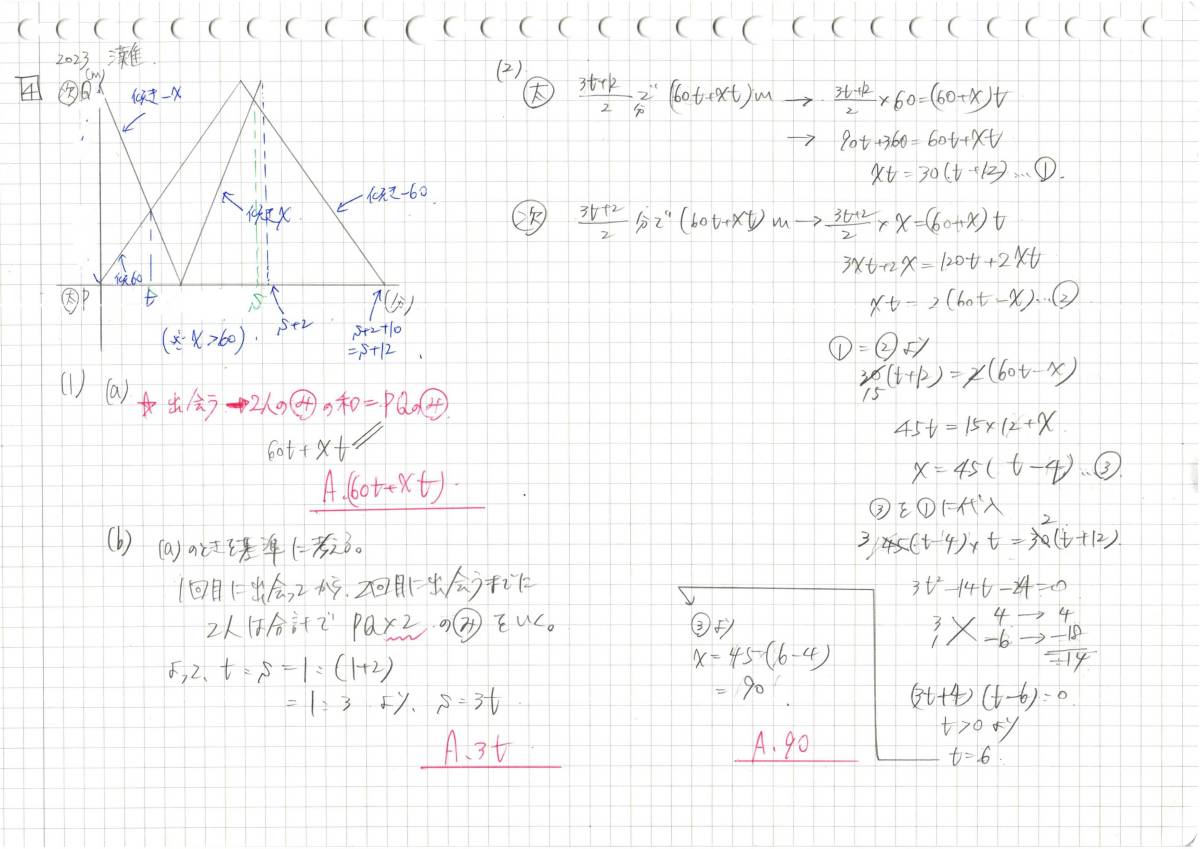 2023 灘
4
次Q (m)
傾き-x
傾き60
傾きx
傾き-60
太P
t
s
(分)
s+2
s+2+10
=s+12
(※x>60)
(1) (a)
☆ 出会う → 2人のみの和=PQのみ
60t+xt
A.(60t+xt)
(b) (a)のときを基準に考える。
1回目に出会ってから、2回目に出会うまでに
2人は合計で PQ×2 のみをいく。
よって、t:s=1:(1+2)
=1:3 より、s=3t
A.3t
(2)
太 3t+12/2 分で (60t+xt)m → 3t+12/2 ×60=(60+x)t
→ 90t+360=60t+xt
xt=30(t+12)…①
次 3t+2/2 分で (60t+xt)m → 3t+2/2 ×x=(60+x)t
3xt+2x=120t+2xt
xt=2(60t-x)…②
①=②より
30(t+12)=2(60t-x)
15
45t=15×12+x
x=45(t-4)…③
③を①に代入
2
3 45(t-4)×t=30(t+12)
3t²-14t-24=0
3 4 → 4
1 -6 → -18
-14
(3t+4)(t-6)=0
t>0より
t=6
③より
x=45(6-4)
=90
A.90